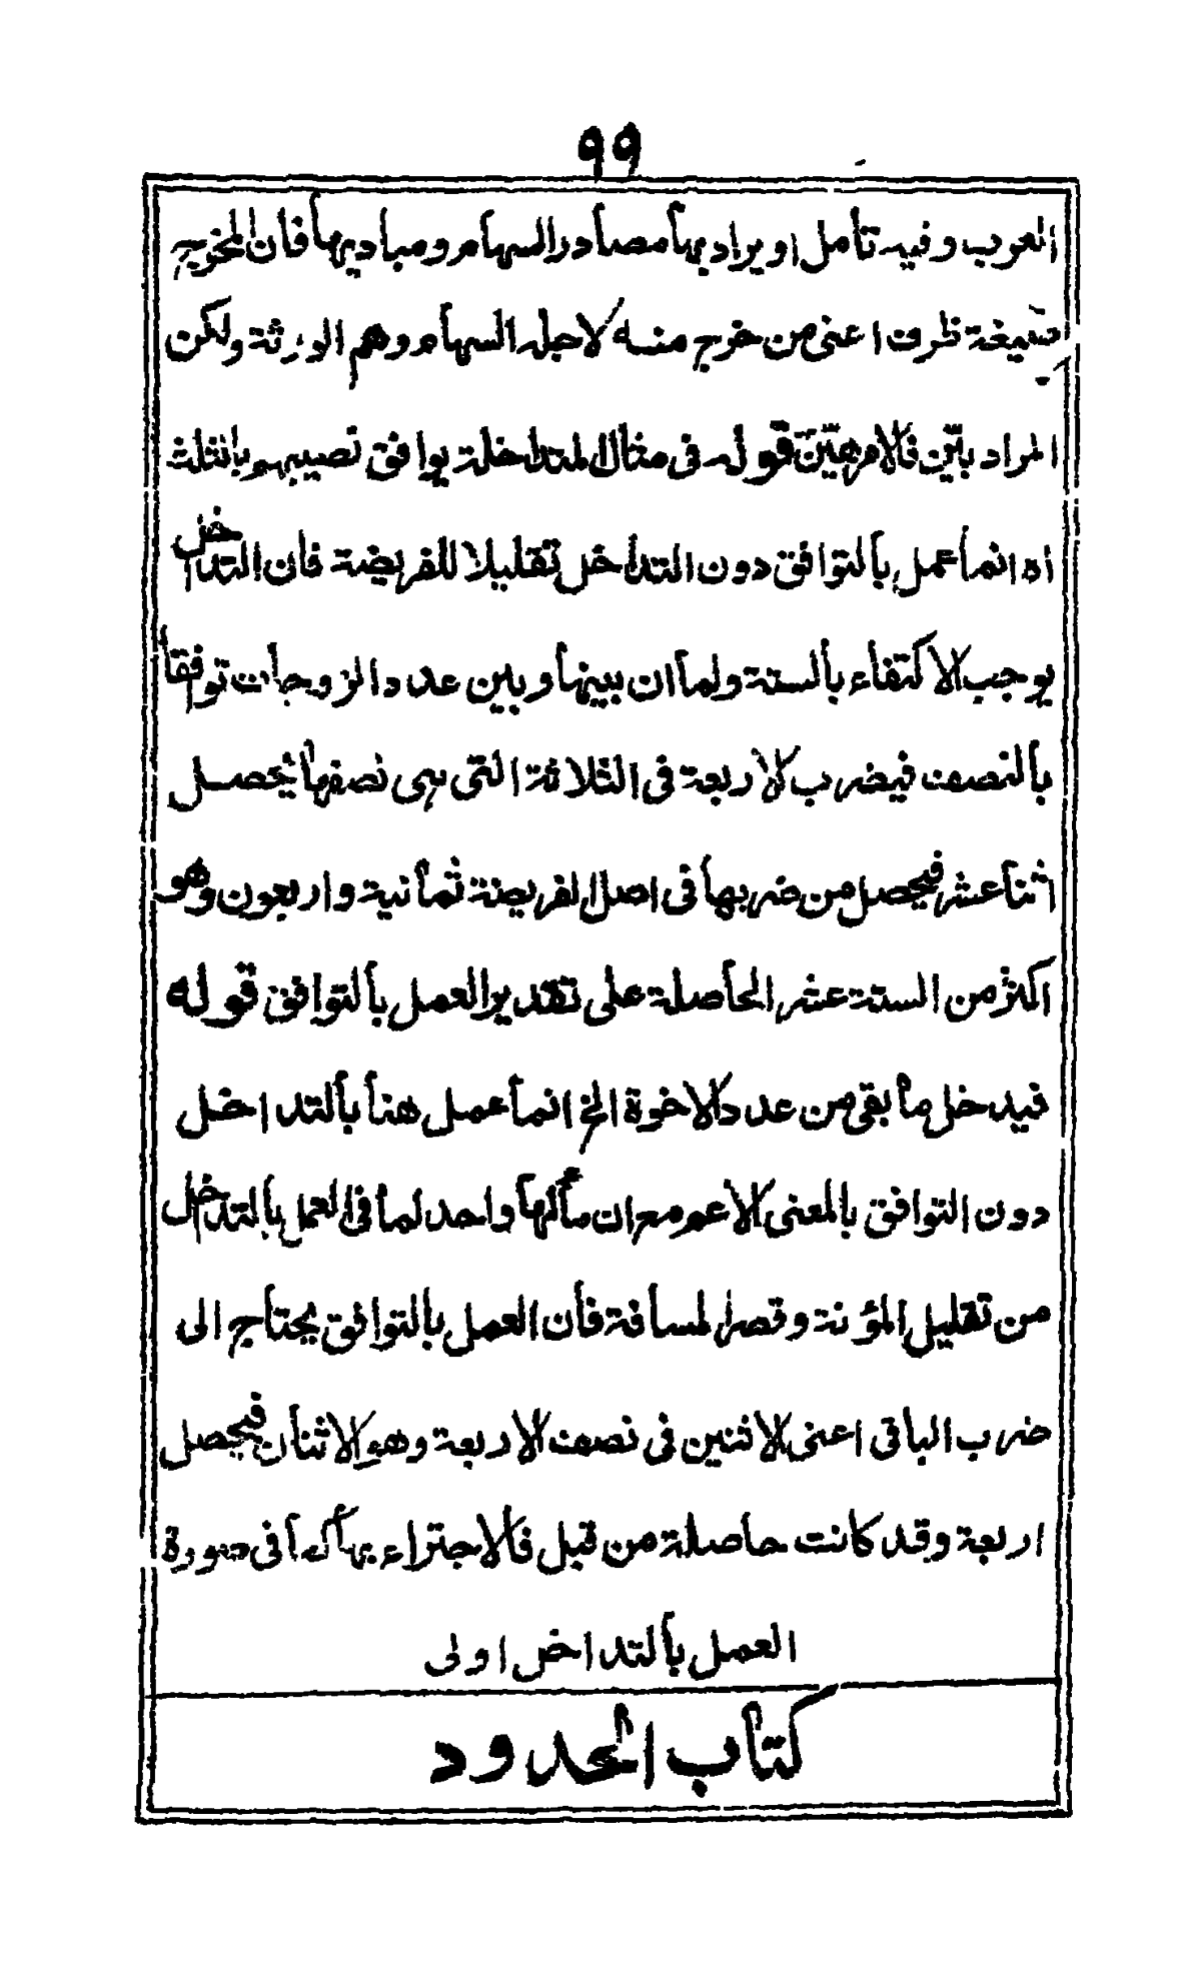 ٩٩
العرب وفيه تأمل او يراد بها مصادر السهام ومباديها فان المخرج
صيغة ظرف اعنى من خرج منه لاجله السهام وهم الورثة ولكن
المراد بيّن فالامر هيّن قوله فى مثال المتداخلة يوافق نصيبهم بالثلث
اه انما عمل بالتوافق دون التداخل تقليلا للفريضة فان التداخل
يوجب الاكتفاء بالستة ولما ان بينها وبين عدد الزوجات توفقا
بالنصف فيضرب الاربعة فى الثلاثة التى هى نصفها يحصل
اثنا عشر فيحصل من ضربها فى اصل الفريضة ثمانية واربعون وهو
اكثر من الستة عشر الحاصلة على تقدير العمل بالتوافق قوله
فيدخل ما بقى من عدد الاخوة الخ انما عمل هنا بالتداخل
دون التوافق بالمعنى الاعم مع ان مآلها واحد لما فى العمل بالتداخل
من تقليل المؤنة وقصر المسافة فان العمل بالتوافق يحتاج الى
ضرب الباقى اعنى الاثنين فى نصف الاربعة وهو الاثنان فيحصل
اربعة وقد كانت حاصلة من قبل فالاجتزاء بها كما فى صورة
العمل بالتداخل اولى
كتاب الحدود